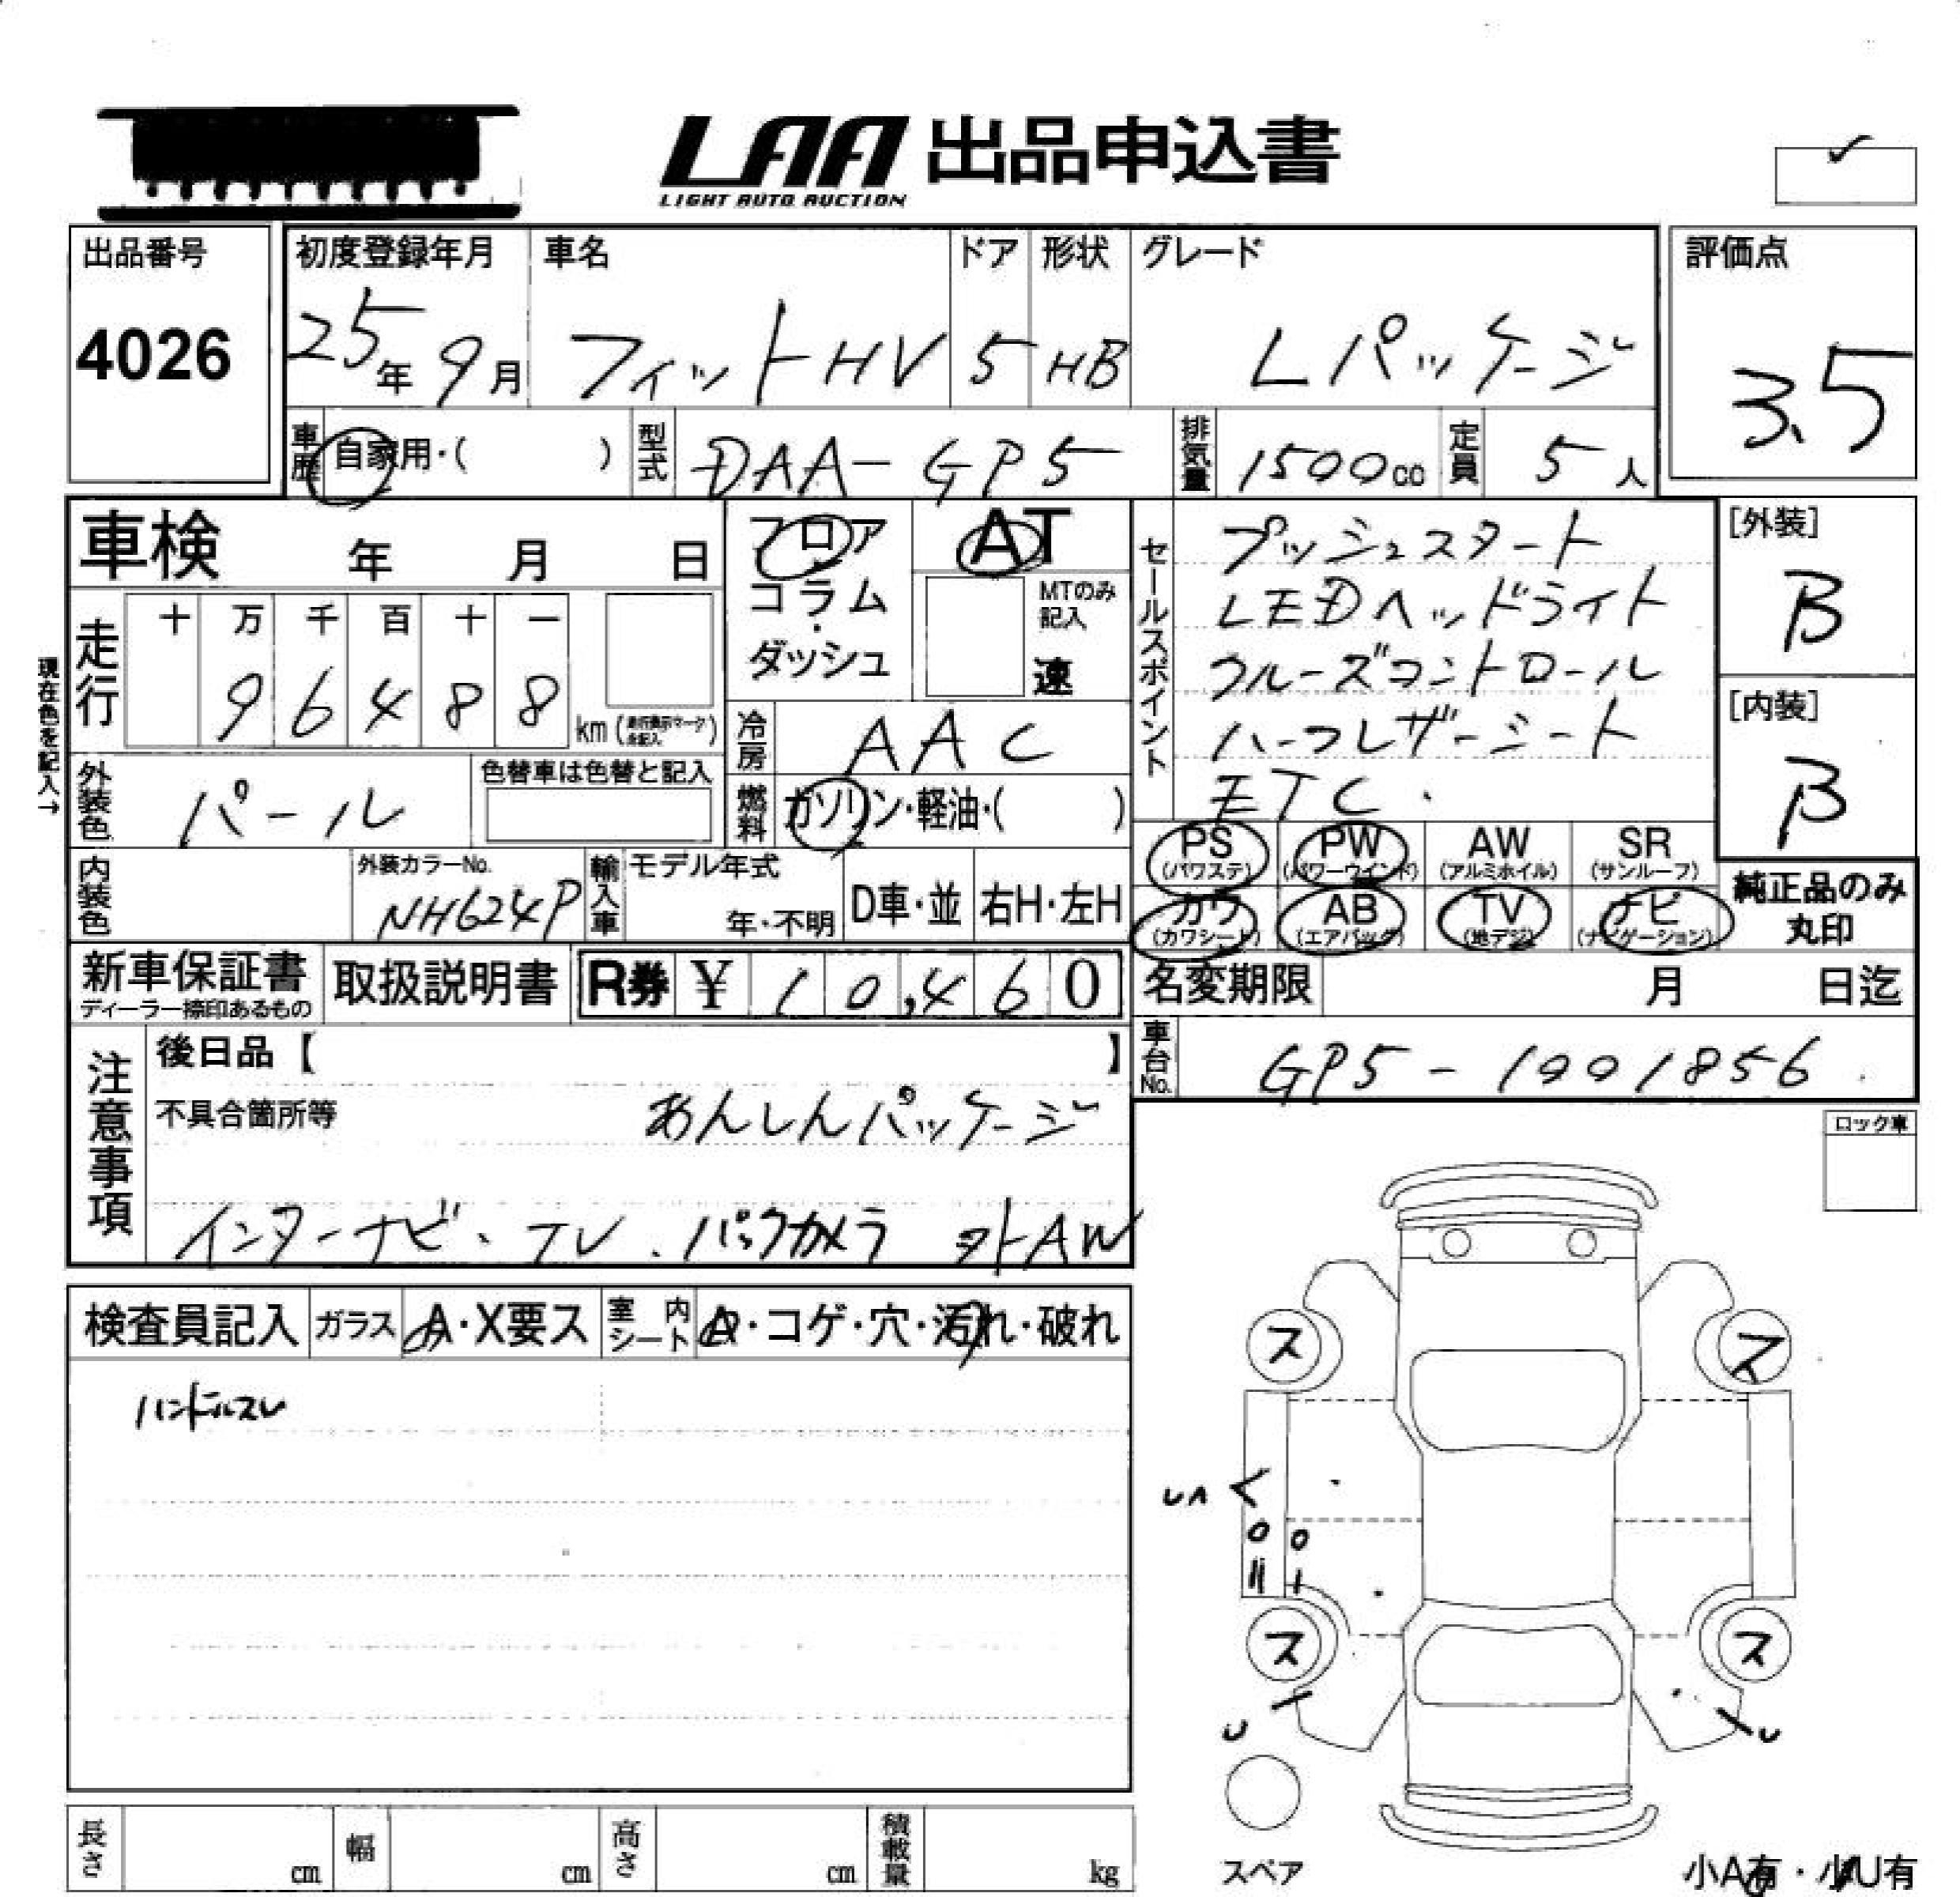 LAA 出品申込書
LIGHT AUTO AUCTION
✓
出品番号
4026
初度登録年月
25年 9月
車名
フィットHV
ドア
5
形状
HB
グレード
Lパッケージ
評価点
3.5
車歴 自家用・( )
型式 DAA-GP5
排気量 1500cc
定員 5人
車検 年 月 日
フロア
コラム
・
ダッシュ
AT
MTのみ
記入
速
セールスポイント
プッシュスタート
LEDヘッドライト
クルーズコントロール
ハーフレザーシート
ETC.
[外装]
B
[内装]
B
現在色を記入→
走行
十 万 千 百 十 一
9 6 4 8 8
km
冷房 AAC
外装色 パール
色替車は色替と記入
燃料 ガソリン・軽油・( )
PS (パワステ)
PW (パワーウインド)
AW (アルミホイル)
SR (サンルーフ)
内装色
外装カラーNo.
NH624P
輸入車
モデル年式
年・不明
D車・並
右H・左H
カワ (カワシート)
AB (エアバッグ)
TV (地デジ)
ナビ (ナビゲーション)
純正品のみ
丸印
新車保証書
ディーラー捺印あるもの
取扱説明書
R券 ¥ 10,460
名変期限 月 日迄
注意事項
後日品【 】
車台No. GP5-1001856
不具合箇所等
あんしんパッケージ
インターナビ、TV.バックカメラ 外AW
ロック車
検査員記入
ガラス A・X要ス
室内シート A・コゲ・穴・汚れ・破れ
ハンドルスレ
ス ス
UA
ス ス
U U
スペア
長さ cm
幅 cm
高さ cm
積載量 kg
小A有・小U有